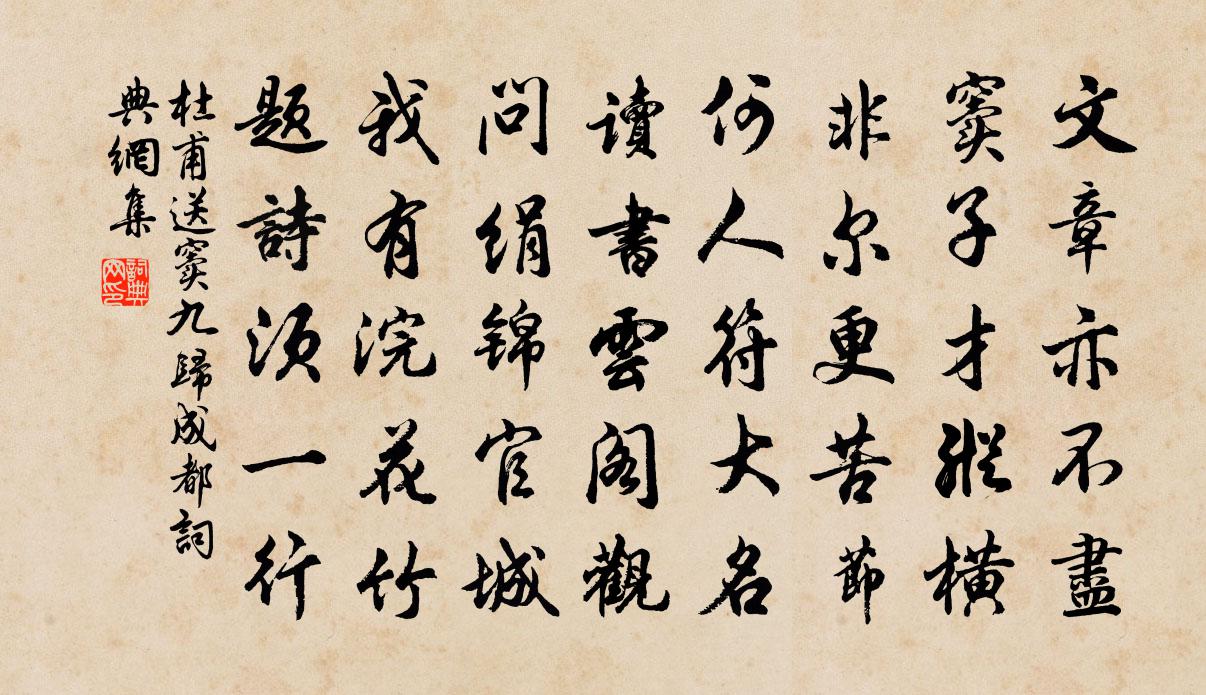 文章亦不盡
竇子才縱橫
非尔更苦節
何人符大名
讀書雲閣觀
問絹錦官城
我有浣花竹
題詩須一行
杜甫送竇九歸成都詞
典網集
詞典
网印